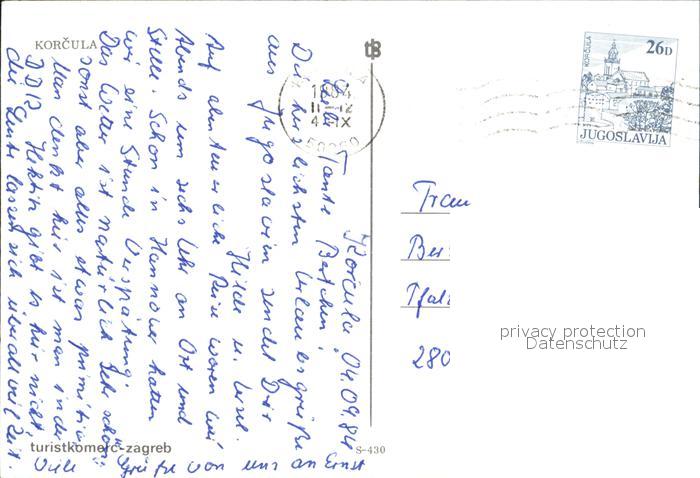 KORČULA
Korčula, 04.09.84
Liebe Tante Bertchen!
Die herzlichsten Urlaubsgrüße
aus Jugoslawien sendet Dir
Hilde u. Ursel.
Auf abenteuerliche Reise waren wir
Abends um sechs Uhr an Ort und
Stelle. Schon in Hannover hatten
wir eine Stunde Verspätung.
Das Wetter ist natürlich sehr schön,
sonst aber alles etwas primitiv.
Man denkt hier ist man in der
DDR. Hektik gibt es hier nicht,
die Leute lassen sich überall viel Zeit.
Viele Grüße von uns an Ernst
turistkomerc-zagreb
S-430
tB
1984
11-12
4 IX
50260
KORČULA
26D
JUGOSLAVIJA
Frau
Ber
Pfal
280
privacy protection
Datenschutz